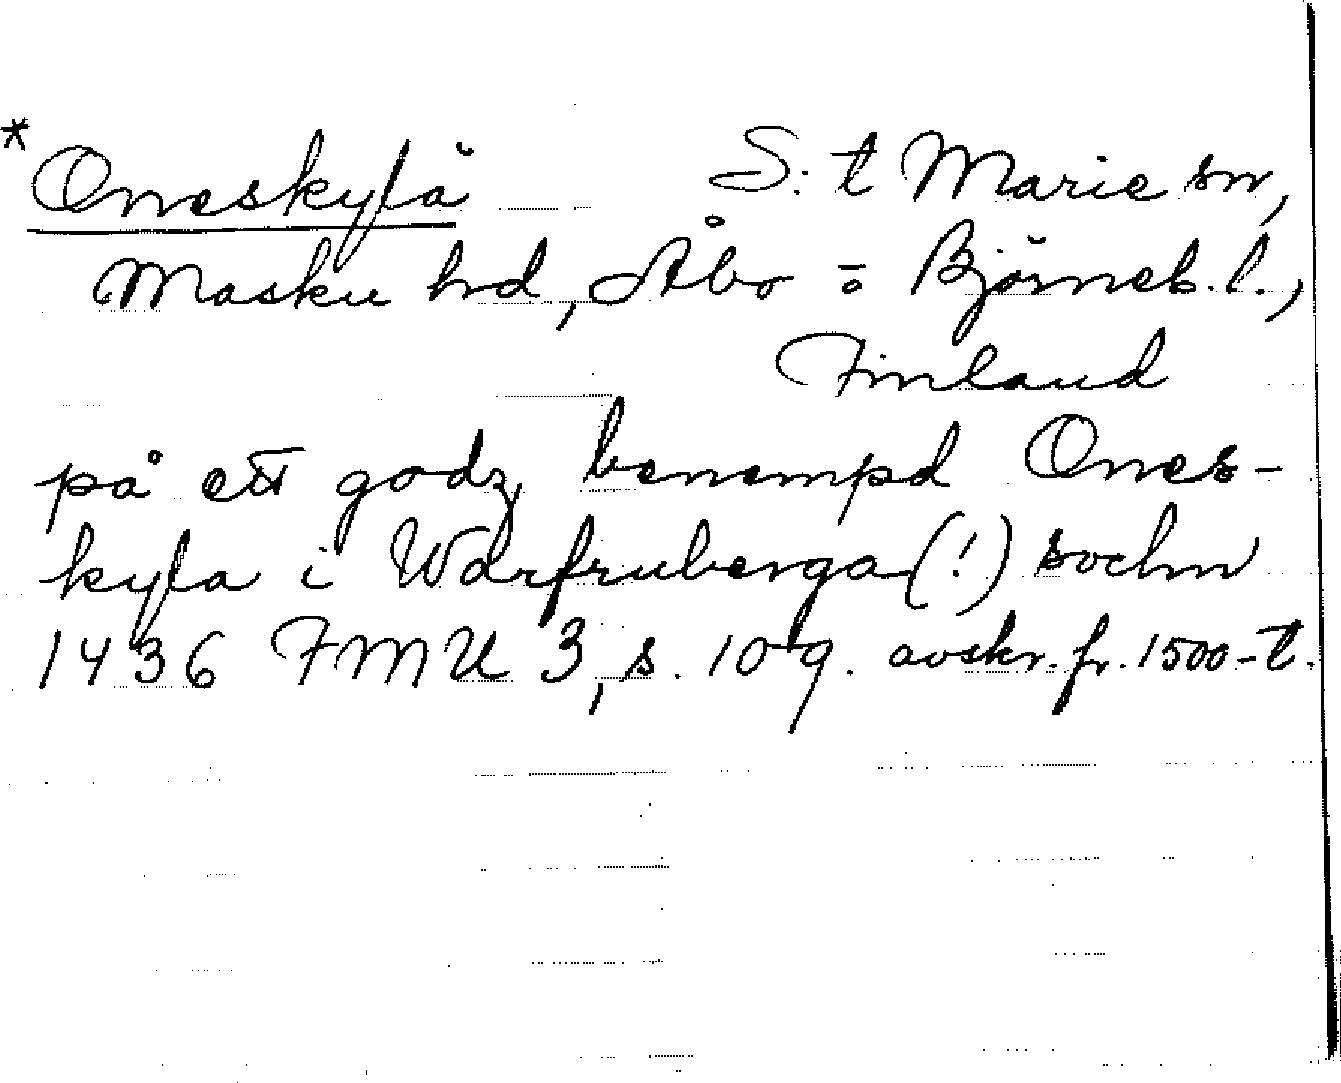 * Oneskylä S:t Marie sn,
Masku hd, Åbo o Björneb. l.,
Finland
på ett godz benempd Ones-
kyla i Warfruberga (!) sochn
1436 FMU 3, s. 109. avskr. fr. 1500-t.